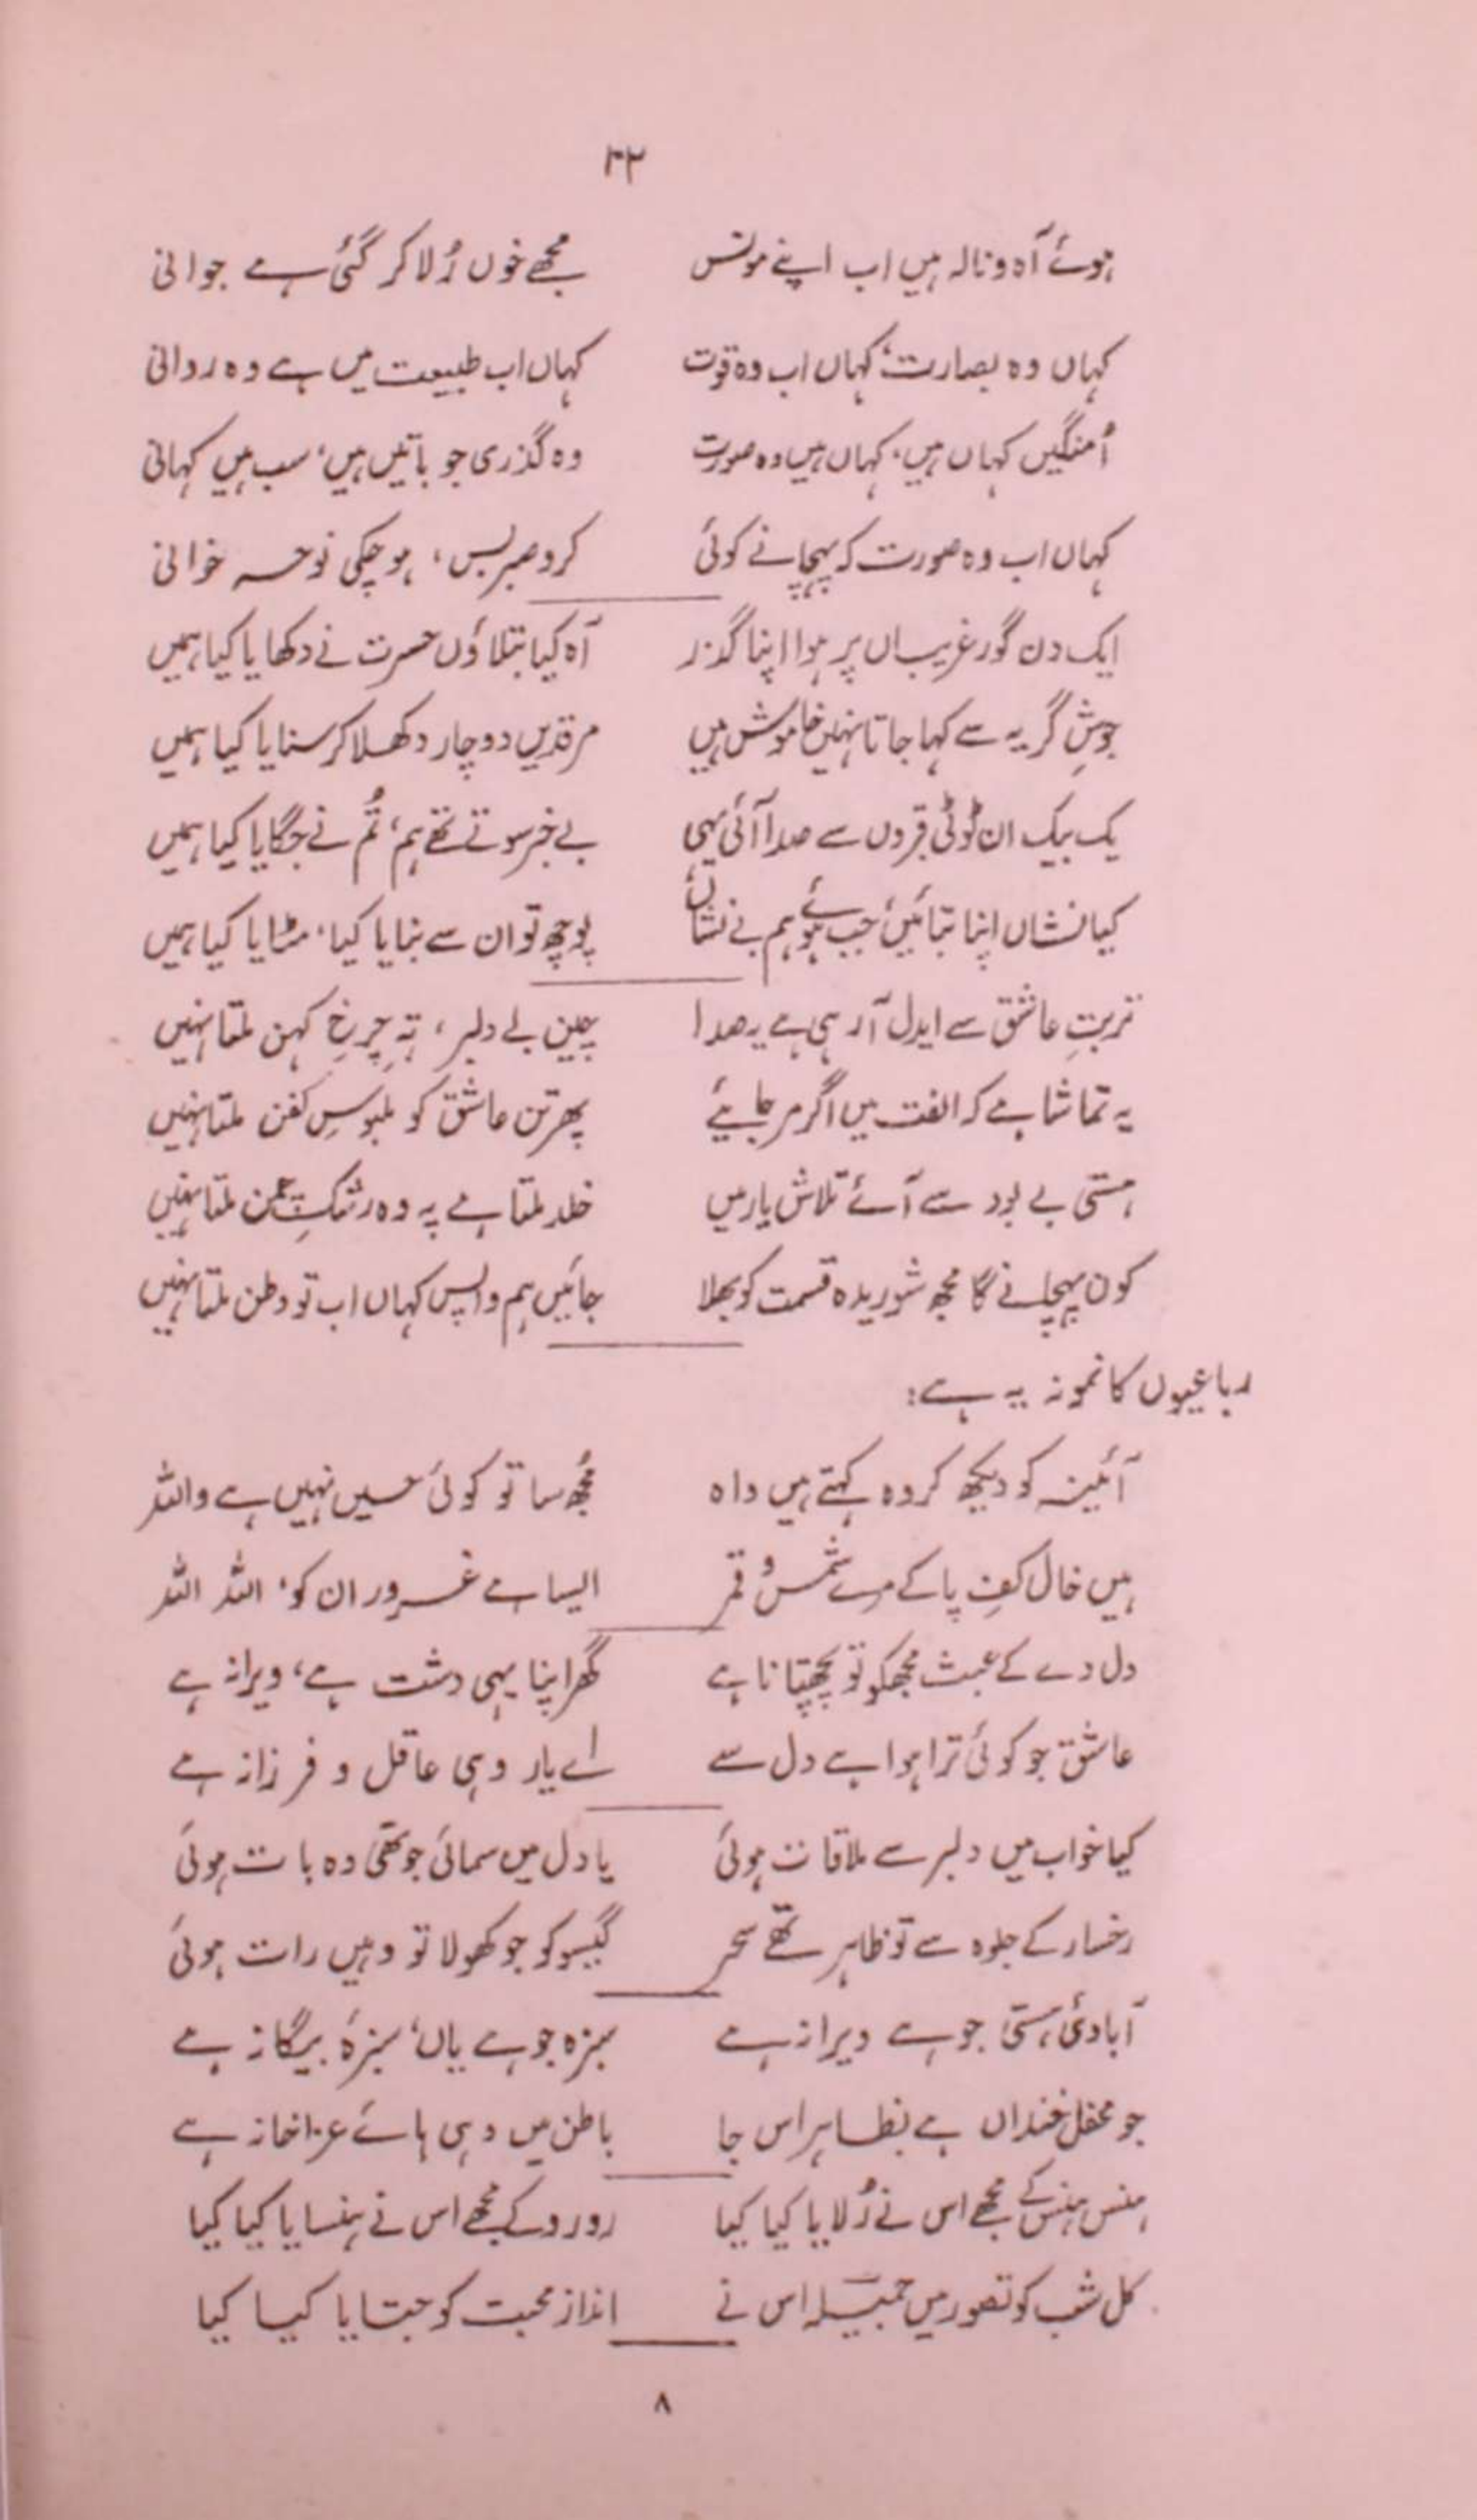 ۳۲
ہوئے آہ و نالہ ہیں اب اپنے مونس مجھے خوں رُلا کر گئی ہے جوانی
کہاں وہ بصارت، کہاں اب وہ قوت کہاں اب طبیعت میں ہے وہ روانی
اُمنگیں کہاں ہیں، کہاں ہیں وہ صورت وہ گذری جو باتیں ہیں، سب ہیں کہانی
کہاں اب وہ صورت کہ پہچانے کوئی کرو صبر بس، ہو چکی نوحہ خوانی
ایک دن گور غریباں پر ہوا اپنا گذر آہ کیا بتلاؤں حسرت نے دکھایا کیا ہمیں
جوشِ گریہ سے کہا جاتا نہیں خاموش ہیں مرقدیں دو چار دکھلا کر سنایا کیا ہمیں
یک بیک ان ٹوٹی قبروں سے صدا آئی یہی بے خبر سوتے تھے ہم، تُم نے جگایا کیا ہمیں
کیا نشاں اپنا بتائیں جب ہوئے ہم بے نشاں پوچھ تو ان سے بنایا کیا، مٹایا کیا ہمیں
تربتِ عاشق سے ایدل آ رہی ہے یہ صدا چین بے دلبر، تہِ چرخِ کہن ملتا نہیں
یہ تماشا ہے کہ الفت میں اگر مر جایئے پھر تن عاشق کو ملبوسِ کفن ملتا نہیں
ہستی بے بود سے آئے تلاش یار میں خلد ملتا ہے پہ وہ رشکِ چمن ملتا نہیں
کون پہچانے گا مجھ شوریدہ قسمت کو بھلا جائیں ہم واپس کہاں اب تو وطن ملتا نہیں
رباعیوں کا نمونہ یہ ہے:
آئینہ کو دیکھ کر وہ کہتے ہیں واہ مجھ سا تو کوئی حسیں نہیں ہے واللہ
ہیں خال کفِ پا کے مرے شمس و قمر ایسا ہے غرور ان کو، اللہ اللہ
دل دے کے عبث مجھکو تو پچھتانا ہے گھر اپنا یہی دشت ہے، ویرانہ ہے
عاشق جو کوئی ترا ہوا ہے دل سے اے یار وہی عاقل و فرزانہ ہے
کیا خواب میں دلبر سے ملاقات ہوئی یا دل میں سمائی جو تھی وہ بات ہوئی
رخسار کے جلوہ سے تو ظاہر تھے سحر گیسو کو جو کھولا تو وہیں رات ہوئی
آبادئ ہستی جو ہے ویرانہ ہے سبزہ جو ہے یاں، سبزۂ بیگانہ ہے
جو محفل خنداں ہے بظاہر اس جا باطن میں وہی ہائے عزاخانہ ہے
ہنس ہنس کے مجھے اس نے رُلایا کیا کیا رو رو کے مجھے اس نے ہنسایا کیا کیا
کل شب کو تصور میں جمیلہ اس نے انداز محبت کو جتایا کیا کیا
۸